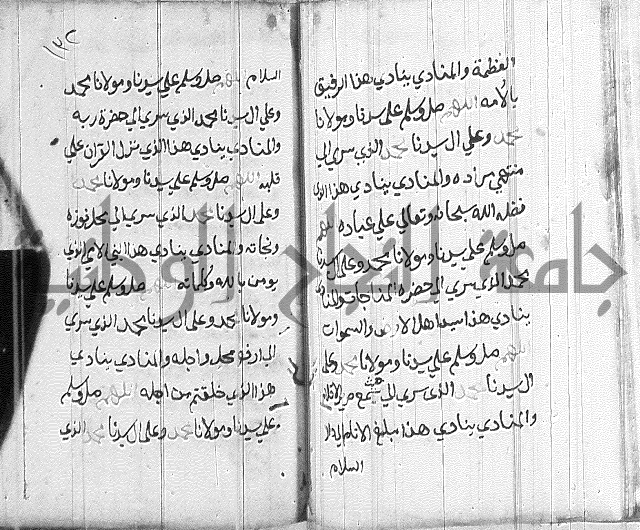 العظمة والمنادي ينادي هذا الرفيق
بالامه اللهم صل وسلم على سيدنا ومولانا
محمد وعلى ال سيدنا محمد الذي سري الي
منتهي مراده والمنادي ينادي هذا الذي
فضله الله سبحانه وتعالي على عباده اللهم
صل وسلم على سيدنا ومولانا محمد وعلى ال سيدنا
محمد الذي سري الي حضرة المناجات والمنادي
ينادي هذا سيد اهل الارض والسموات
اللهم صل وسلم على سيدنا ومولانا محمد وعلى
ال سيدنا محمد الذي سري الي سمع صرير الاقلام
والمنادي ينادي هذا مبلغ الانام الي دار
السلام
١٣٢
السلام اللهم صل وسلم على سيدنا ومولانا محمد
وعلى ال سيدنا محمد الذي سري الي حضرة ربه
والمنادي ينادي هذا الذي نزل القرآن على
قلبه اللهم صل وسلم على سيدنا ومولانا محمد
وعلى ال سيدنا محمد الذي سري الي محل فوزه
ونجاته والمنادي ينادي هذا النبي الامي الذي
يومن بالله وكلماته اللهم صل وسلم على سيدنا
ومولانا محمد وعلى ال سيدنا محمد الذي سري
الي ارفع محل واجله والمنادي ينادي
هذا الذي خلقتم من اجله اللهم صل وسلم
على سيدنا ومولانا محمد وعلى ال سيدنا محمد الذي
جامعة النجاح الوطنية